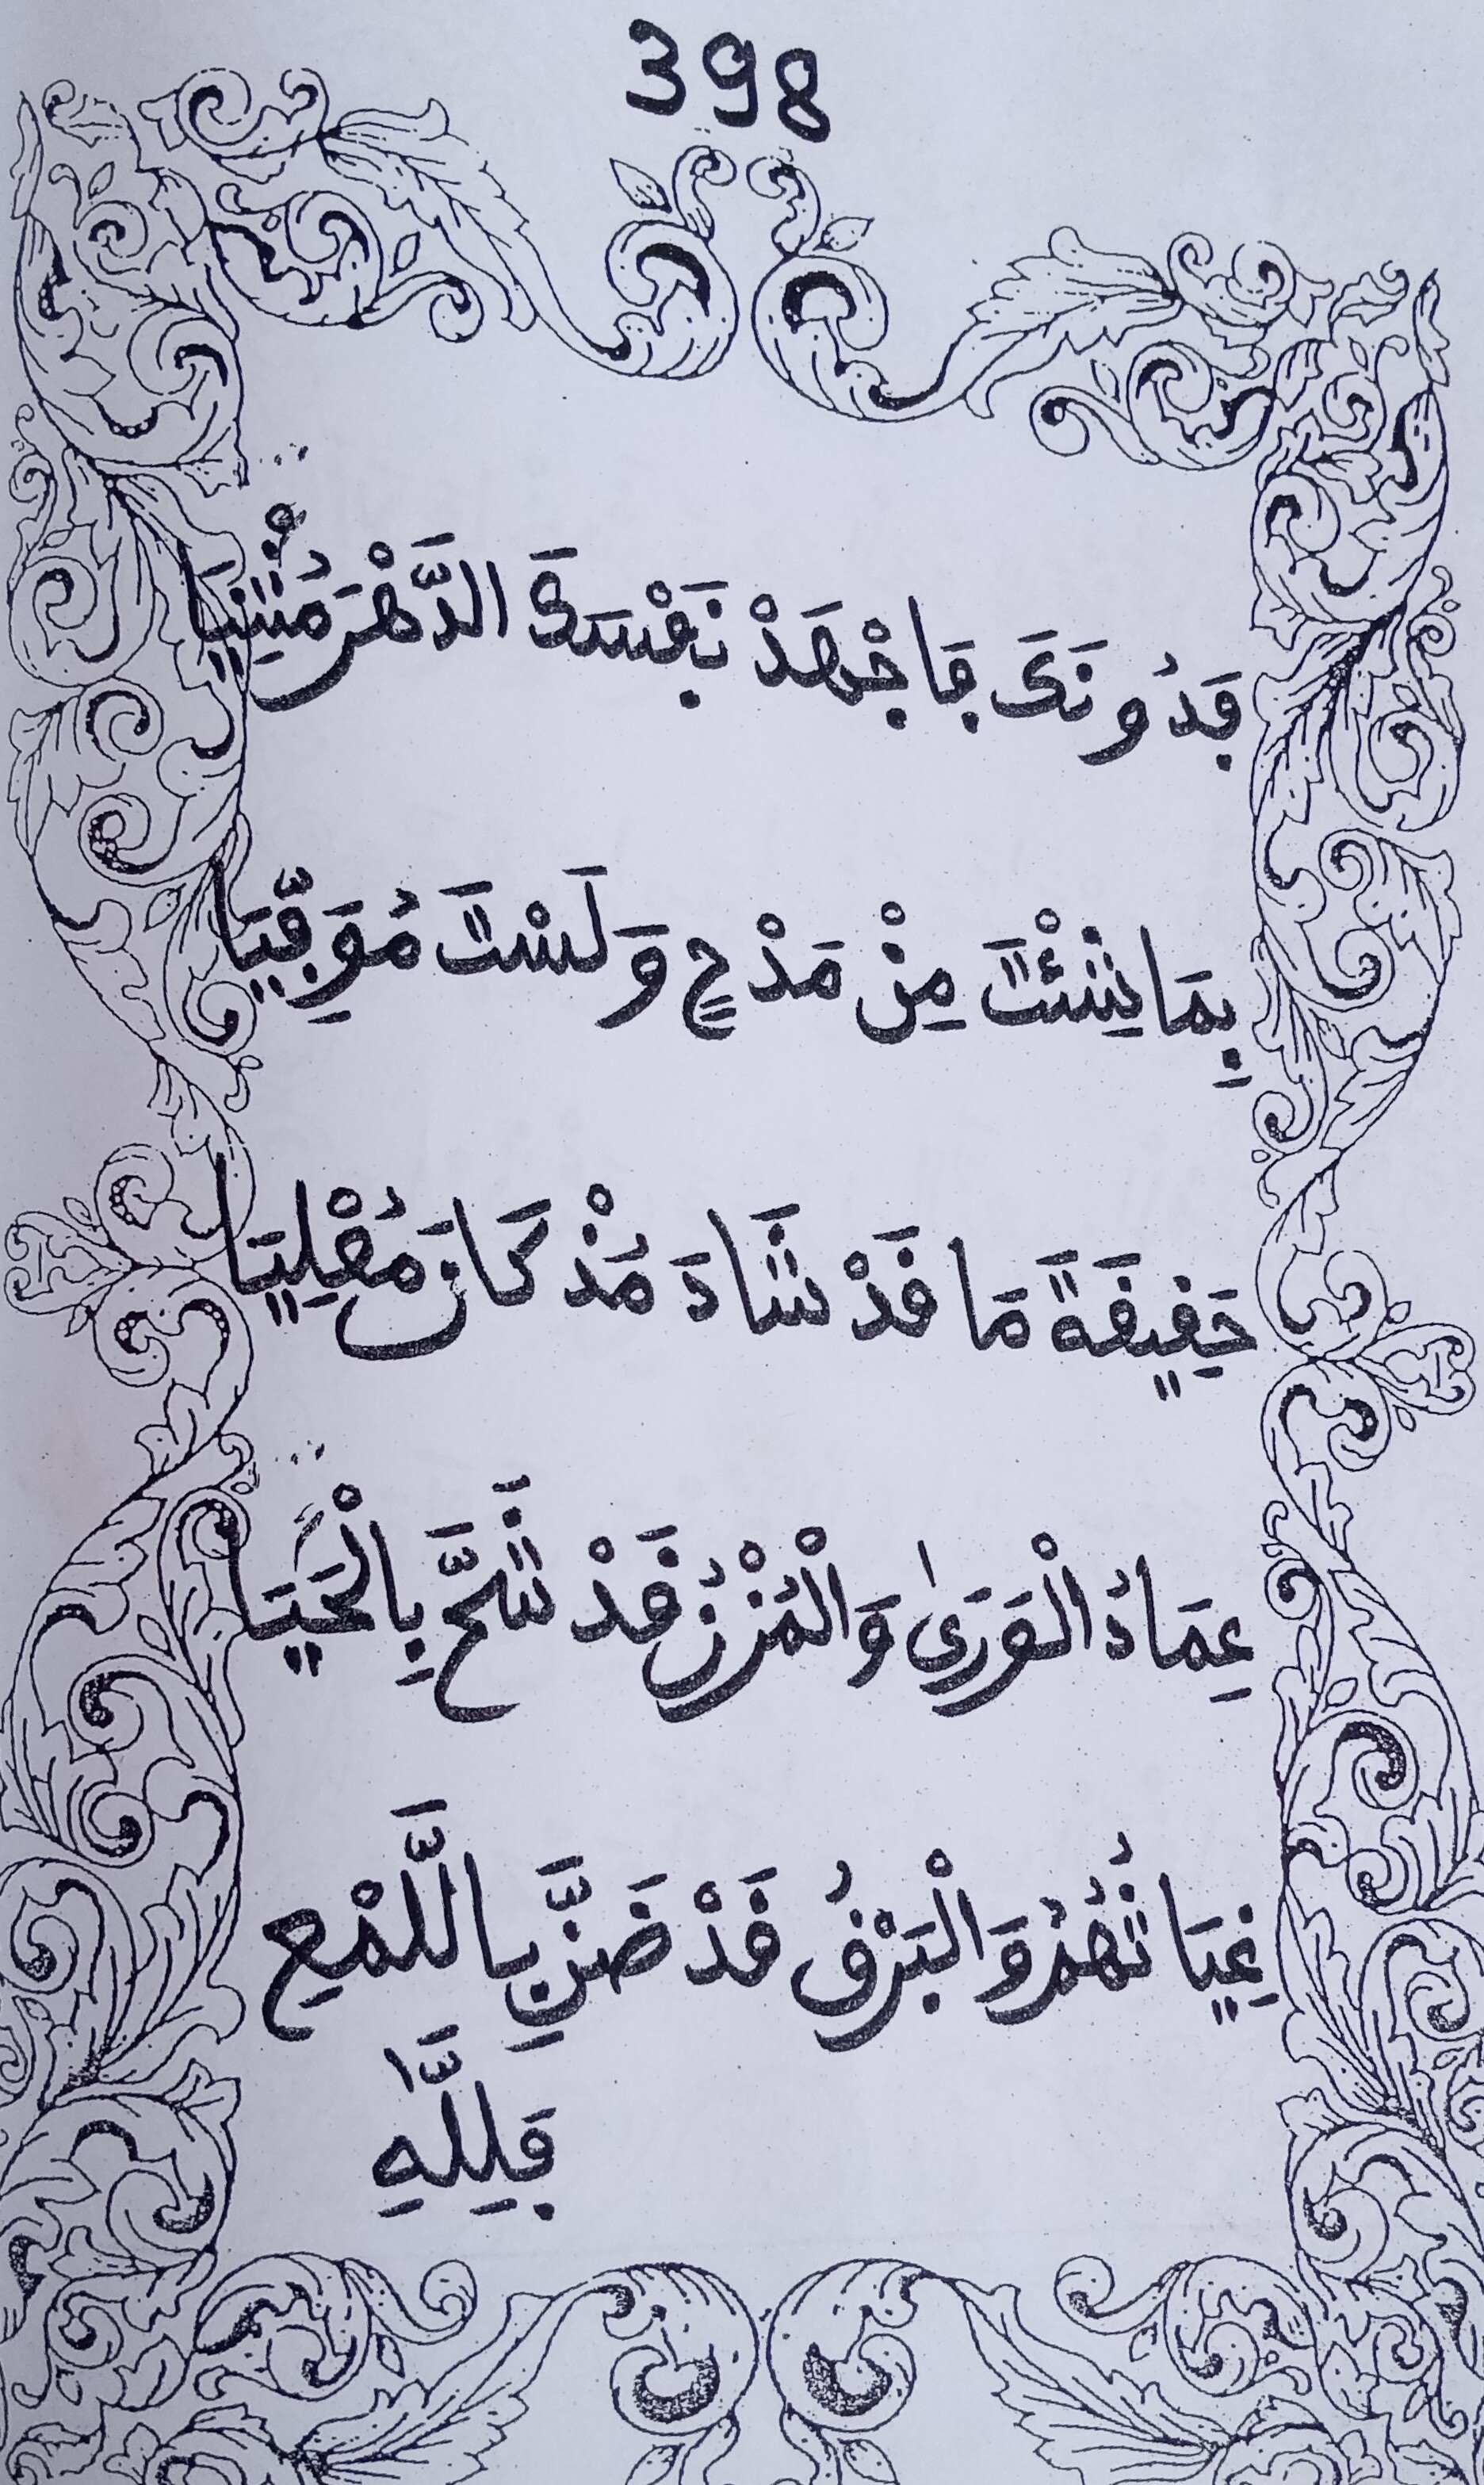 398
فَدُونَكَ فَاجْهَدْ نَفْسَكَ الدَّهْرَ مُثْنِيَا
بِمَا شِئْتَ مِنْ مَدْحٍ وَلَسْتَ مُوَفِّيَا
حَقِيقَةً مَا قَدْ شَادَ مُذْ كَانَ مُعْلِيَا
عِمَادُ الْوَرَىٰ وَالْمُزْنُ قَدْ شَحَّ بِالْحَيَا
غِيَاثُهُمُ وَالْبَرْقُ قَدْ ضَنَّ بِاللَّمْعِ
فَلِلَّهِ